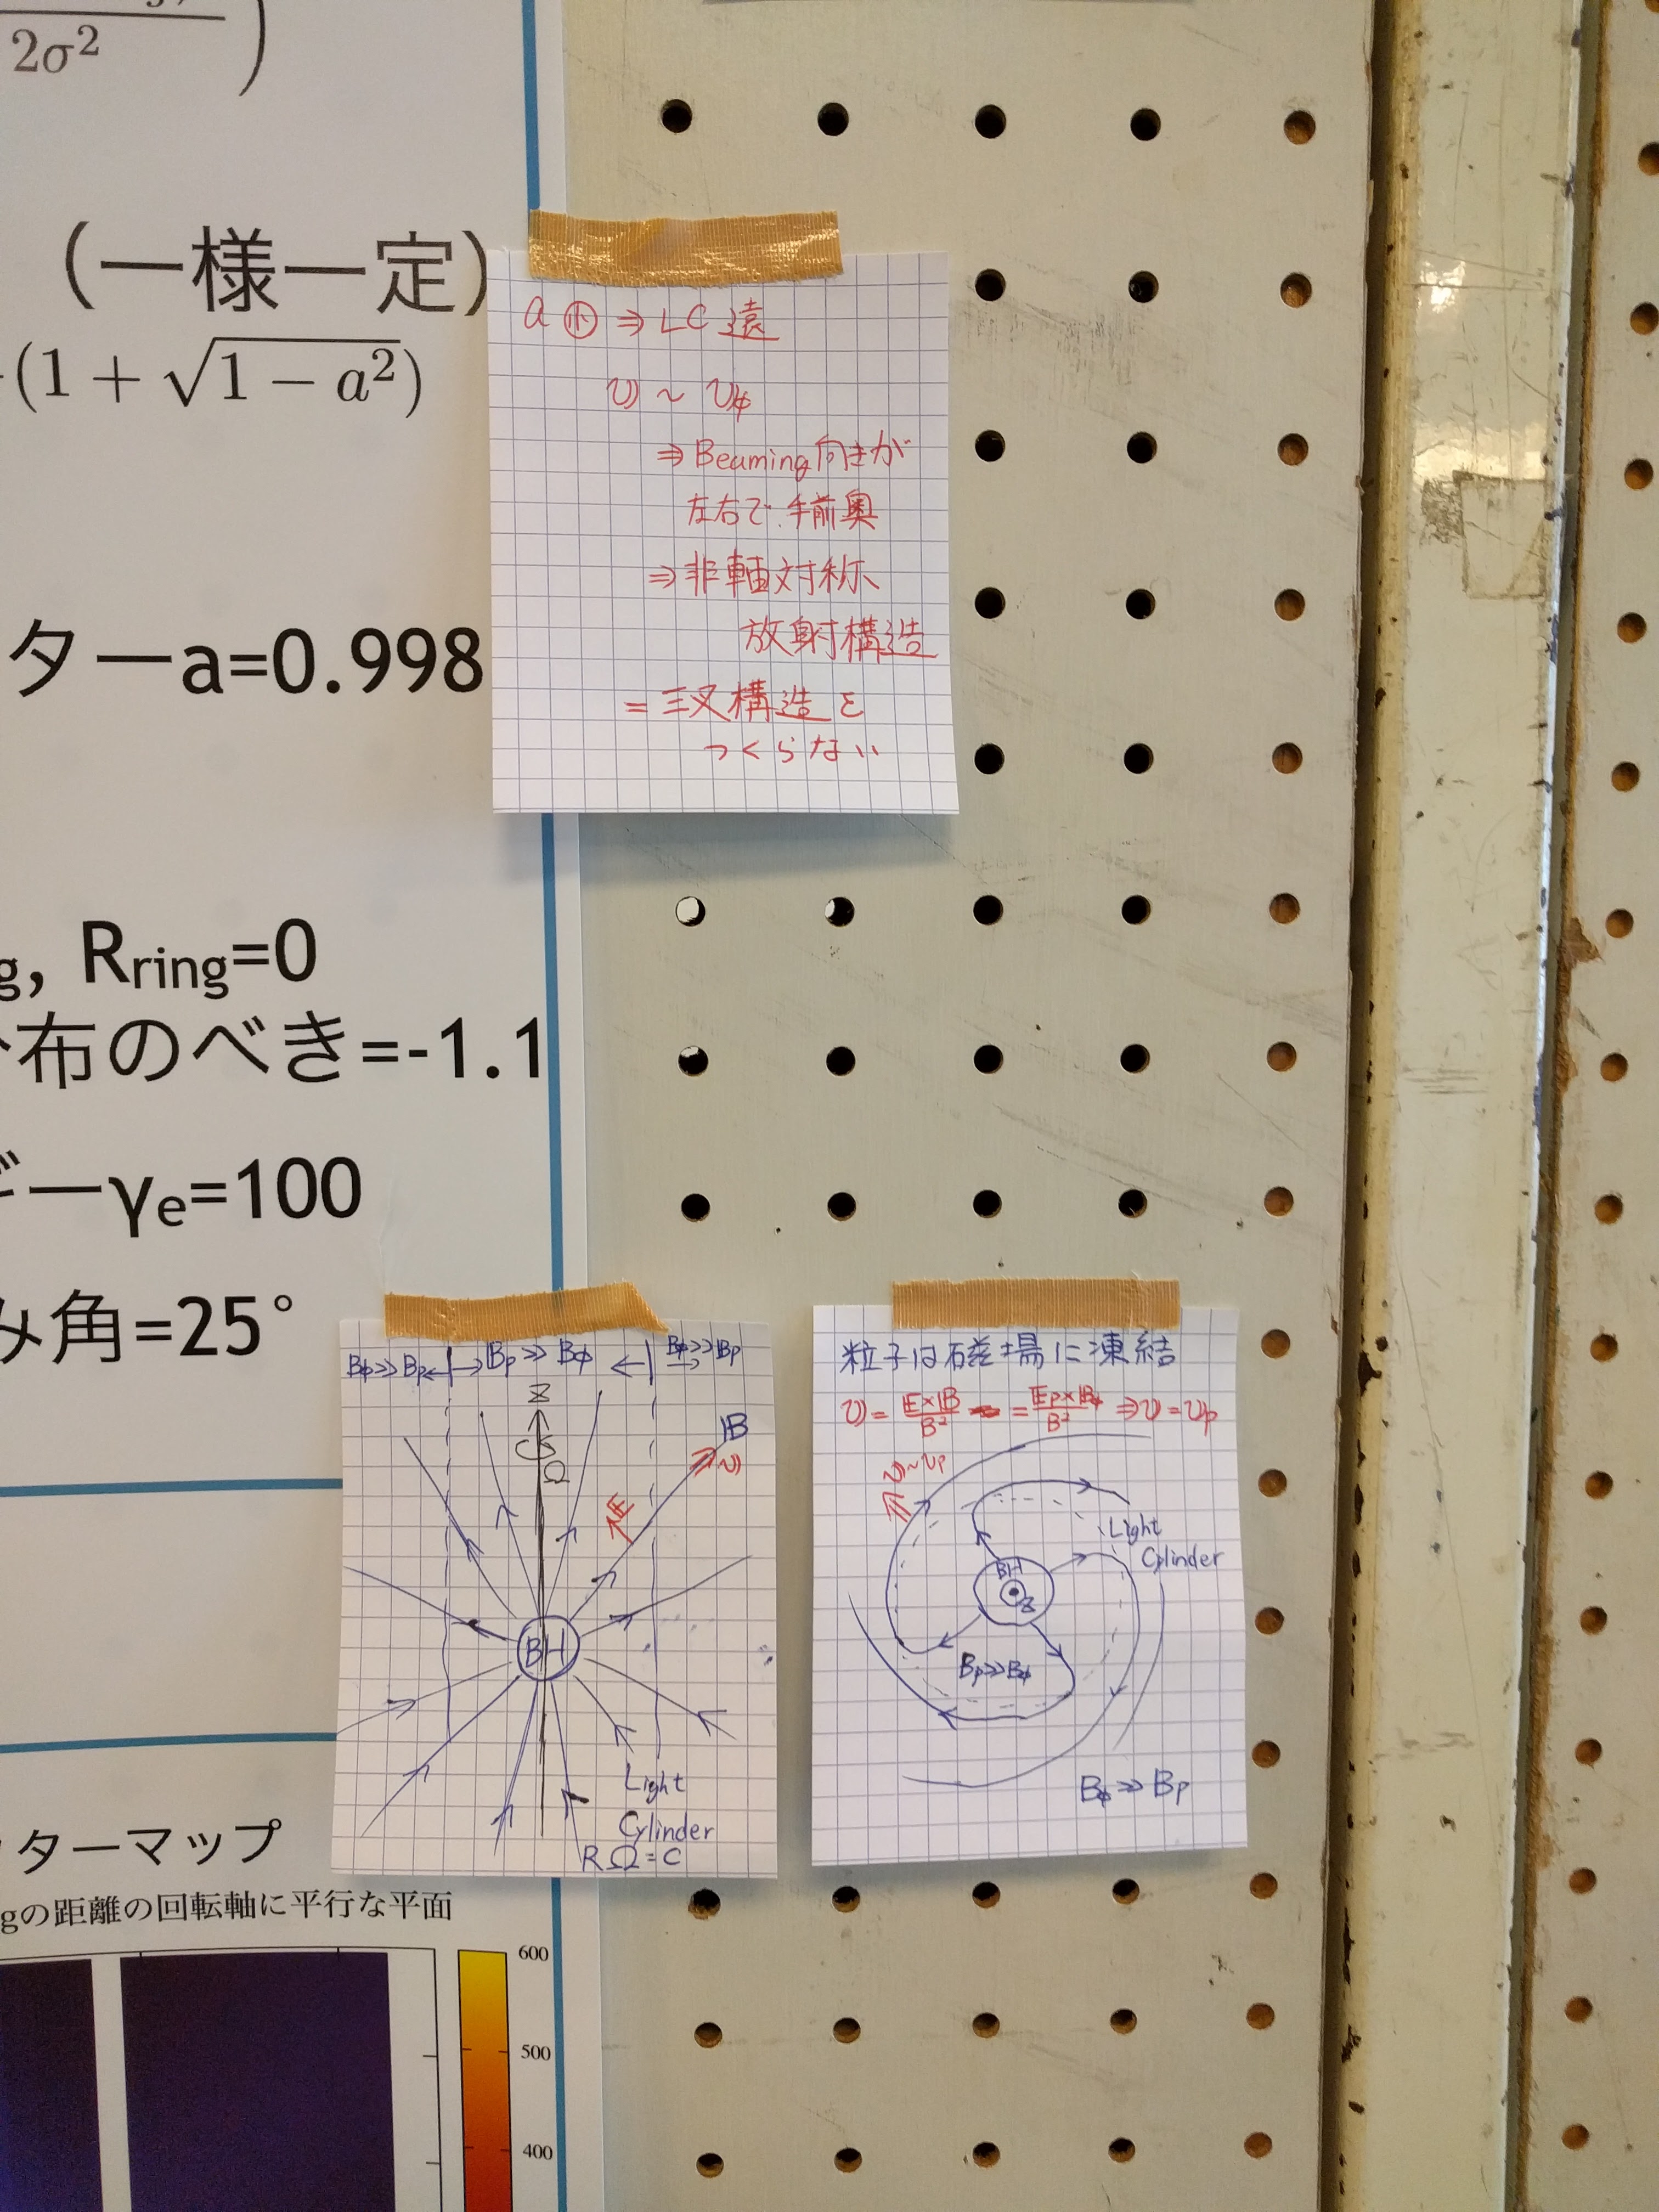 2σ²
(一様一定)
(1 + √1 − a²)
ターa=0.998
g, Rring=0
布のべき=-1.1
ギーγe=100
み角=25°
ターマップ
gの距離の回転軸に平行な平面
600
500
400
a 小 ⇒ LC 遠
v ~ vφ
⇒ Beaming向きが
左右で手前奥
⇒ 非軸対称
放射構造
= 三叉構造を
つくらない
Bφ≫Bp ← | → Bp≫Bφ ← | → Bφ≫Bp
Z
Ω
B
v
E
BH
Light
Cylinder
RΩ=c
粒子は磁場に凍結
v = E×B/B² = Ep×Bφ/B² ⇒ v=vp
v~vp
Light
Cylinder
BH
Z
Bp≫Bφ
Bφ≫Bp